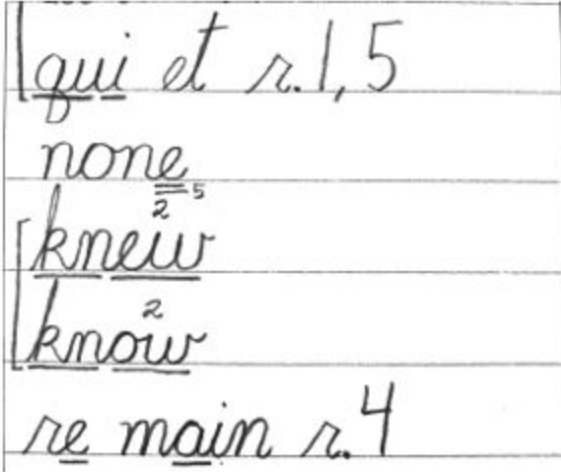 qui et r. 1, 5
none 5
2
knew
2
know
re main r. 4